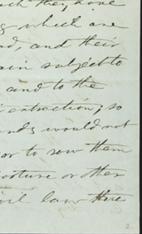 they have
which are
and their
subject to
and to the
extraction; so
would not
or to sow them
pasture or other
law there